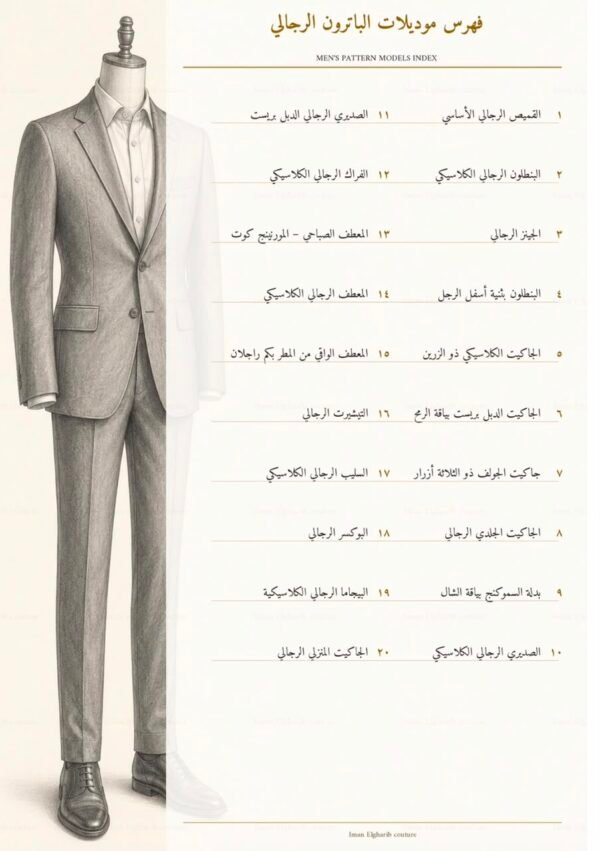 فهرس موديلات الباترون الرجالي
MEN'S PATTERN MODELS INDEX
١ القميص الرجالي الأساسي
٢ البنطلون الرجالي الكلاسيكي
٣ الجينز الرجالي
٤ البنطلون بثنية أسفل الرجل
٥ الجاكيت الكلاسيكي ذو الزرين
٦ الجاكيت الدبل بريست بياقة الرمح
٧ جاكيت الجولف ذو الثلاثة أزرار
٨ الجاكيت الجلدي الرجالي
٩ بدلة السموكنج بياقة الشال
١٠ الصديري الرجالي الكلاسيكي
١١ الصديري الرجالي الدبل بريست
١٢ الفراك الرجالي الكلاسيكي
١٣ المعطف الصباحي – المورنينج كوت
١٤ المعطف الرجالي الكلاسيكي
١٥ المعطف الواقي من المطر بكم راجلان
١٦ التيشيرت الرجالي
١٧ السليب الرجالي الكلاسيكي
١٨ البوكسر الرجالي
١٩ البيجاما الرجالي الكلاسيكية
٢٠ الجاكيت المنزلي الرجالي
Iman Elgharib couture